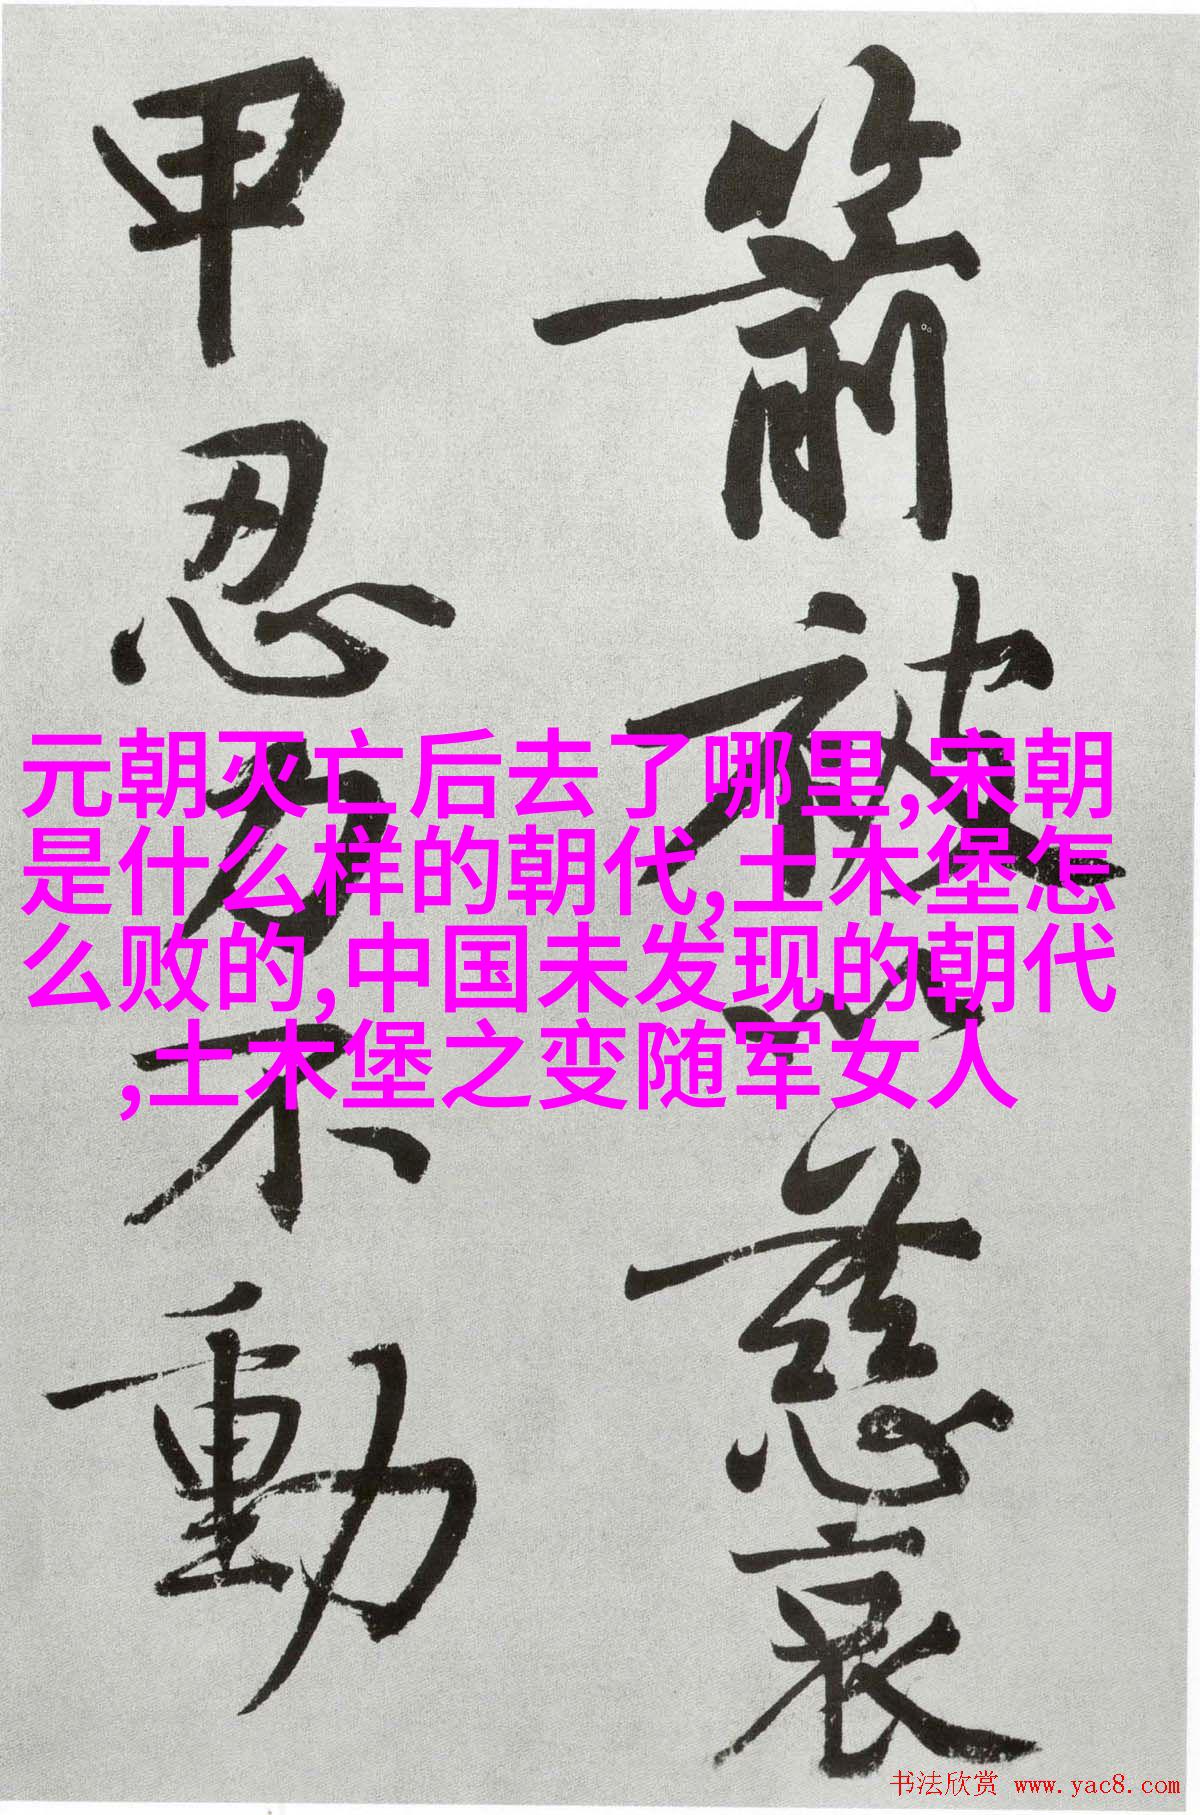 箭被慈哀
甲忍力不動
元朝灭亡后去了哪里,宋朝
是什么样的朝代,土木堡怎
么败的,中国未发现的朝代
,土木堡之变随军女人
书法欣赏 www.yac8.com